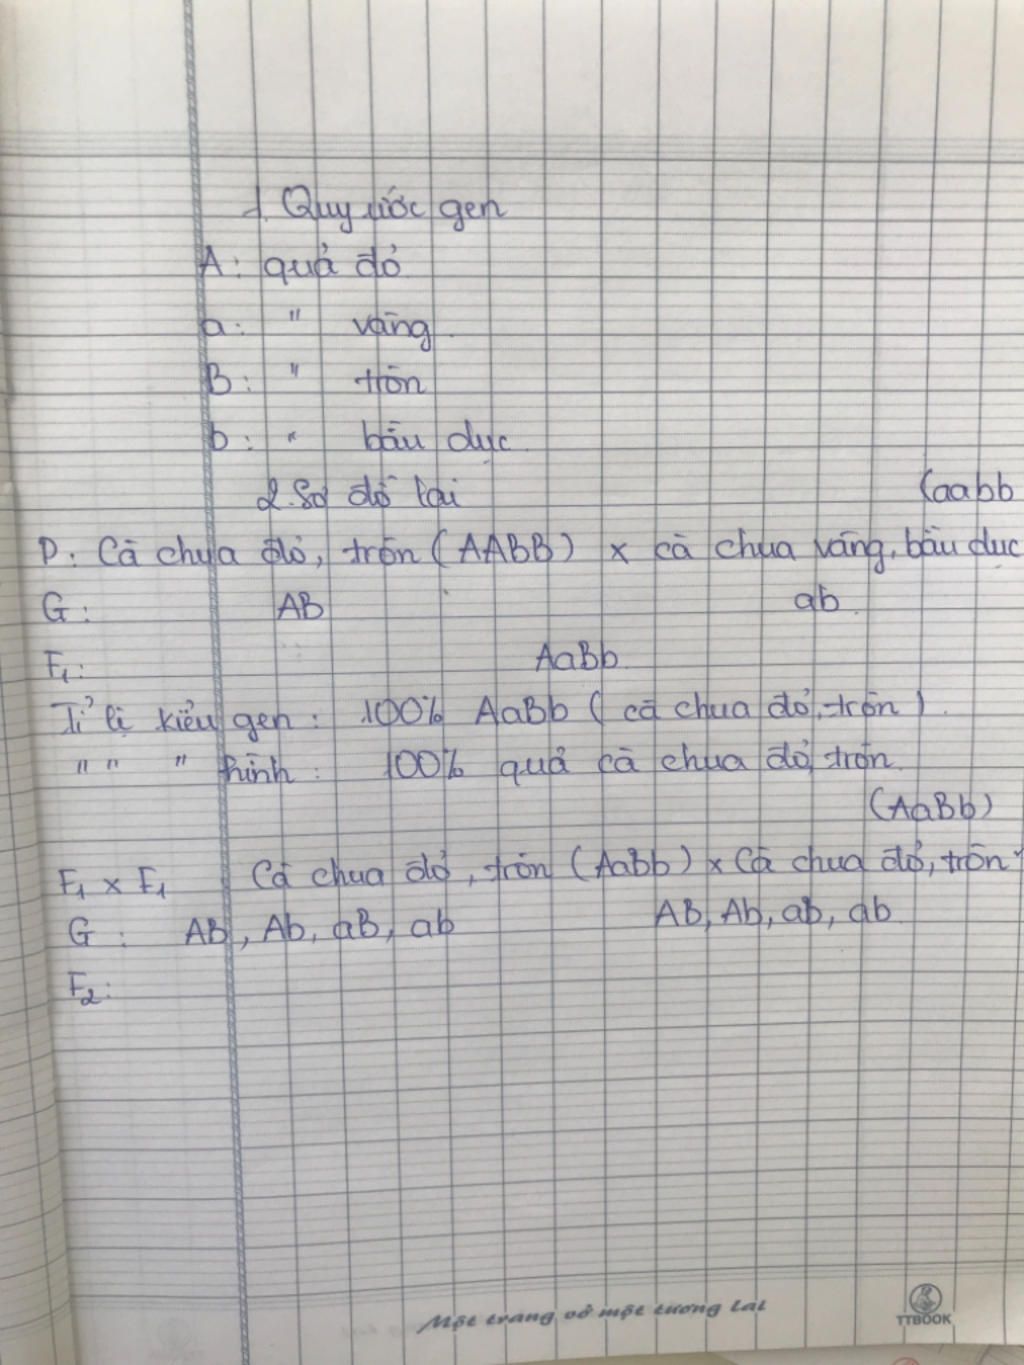 1. Quy ước gen
A: quả đỏ
a: " vàng
B: " tròn
b: " bầu dục
2. Sơ đồ lai
(aabb
P: Cà chua đỏ, tròn (AABB) x cà chua vàng, bầu dục
G: AB ab
F1: AaBb
Tỉ lệ kiểu gen: 100% AaBb (cà chua đỏ, tròn)
" " " hình: 100% quả cà chua đỏ, tròn
(AaBb)
F1 x F1 Cà chua đỏ, tròn (AaBb) x Cà chua đỏ, tròn
G: AB, Ab, aB, ab AB, Ab, ab, ab
F2:
Một trang vở một tương lai
TTBOOK